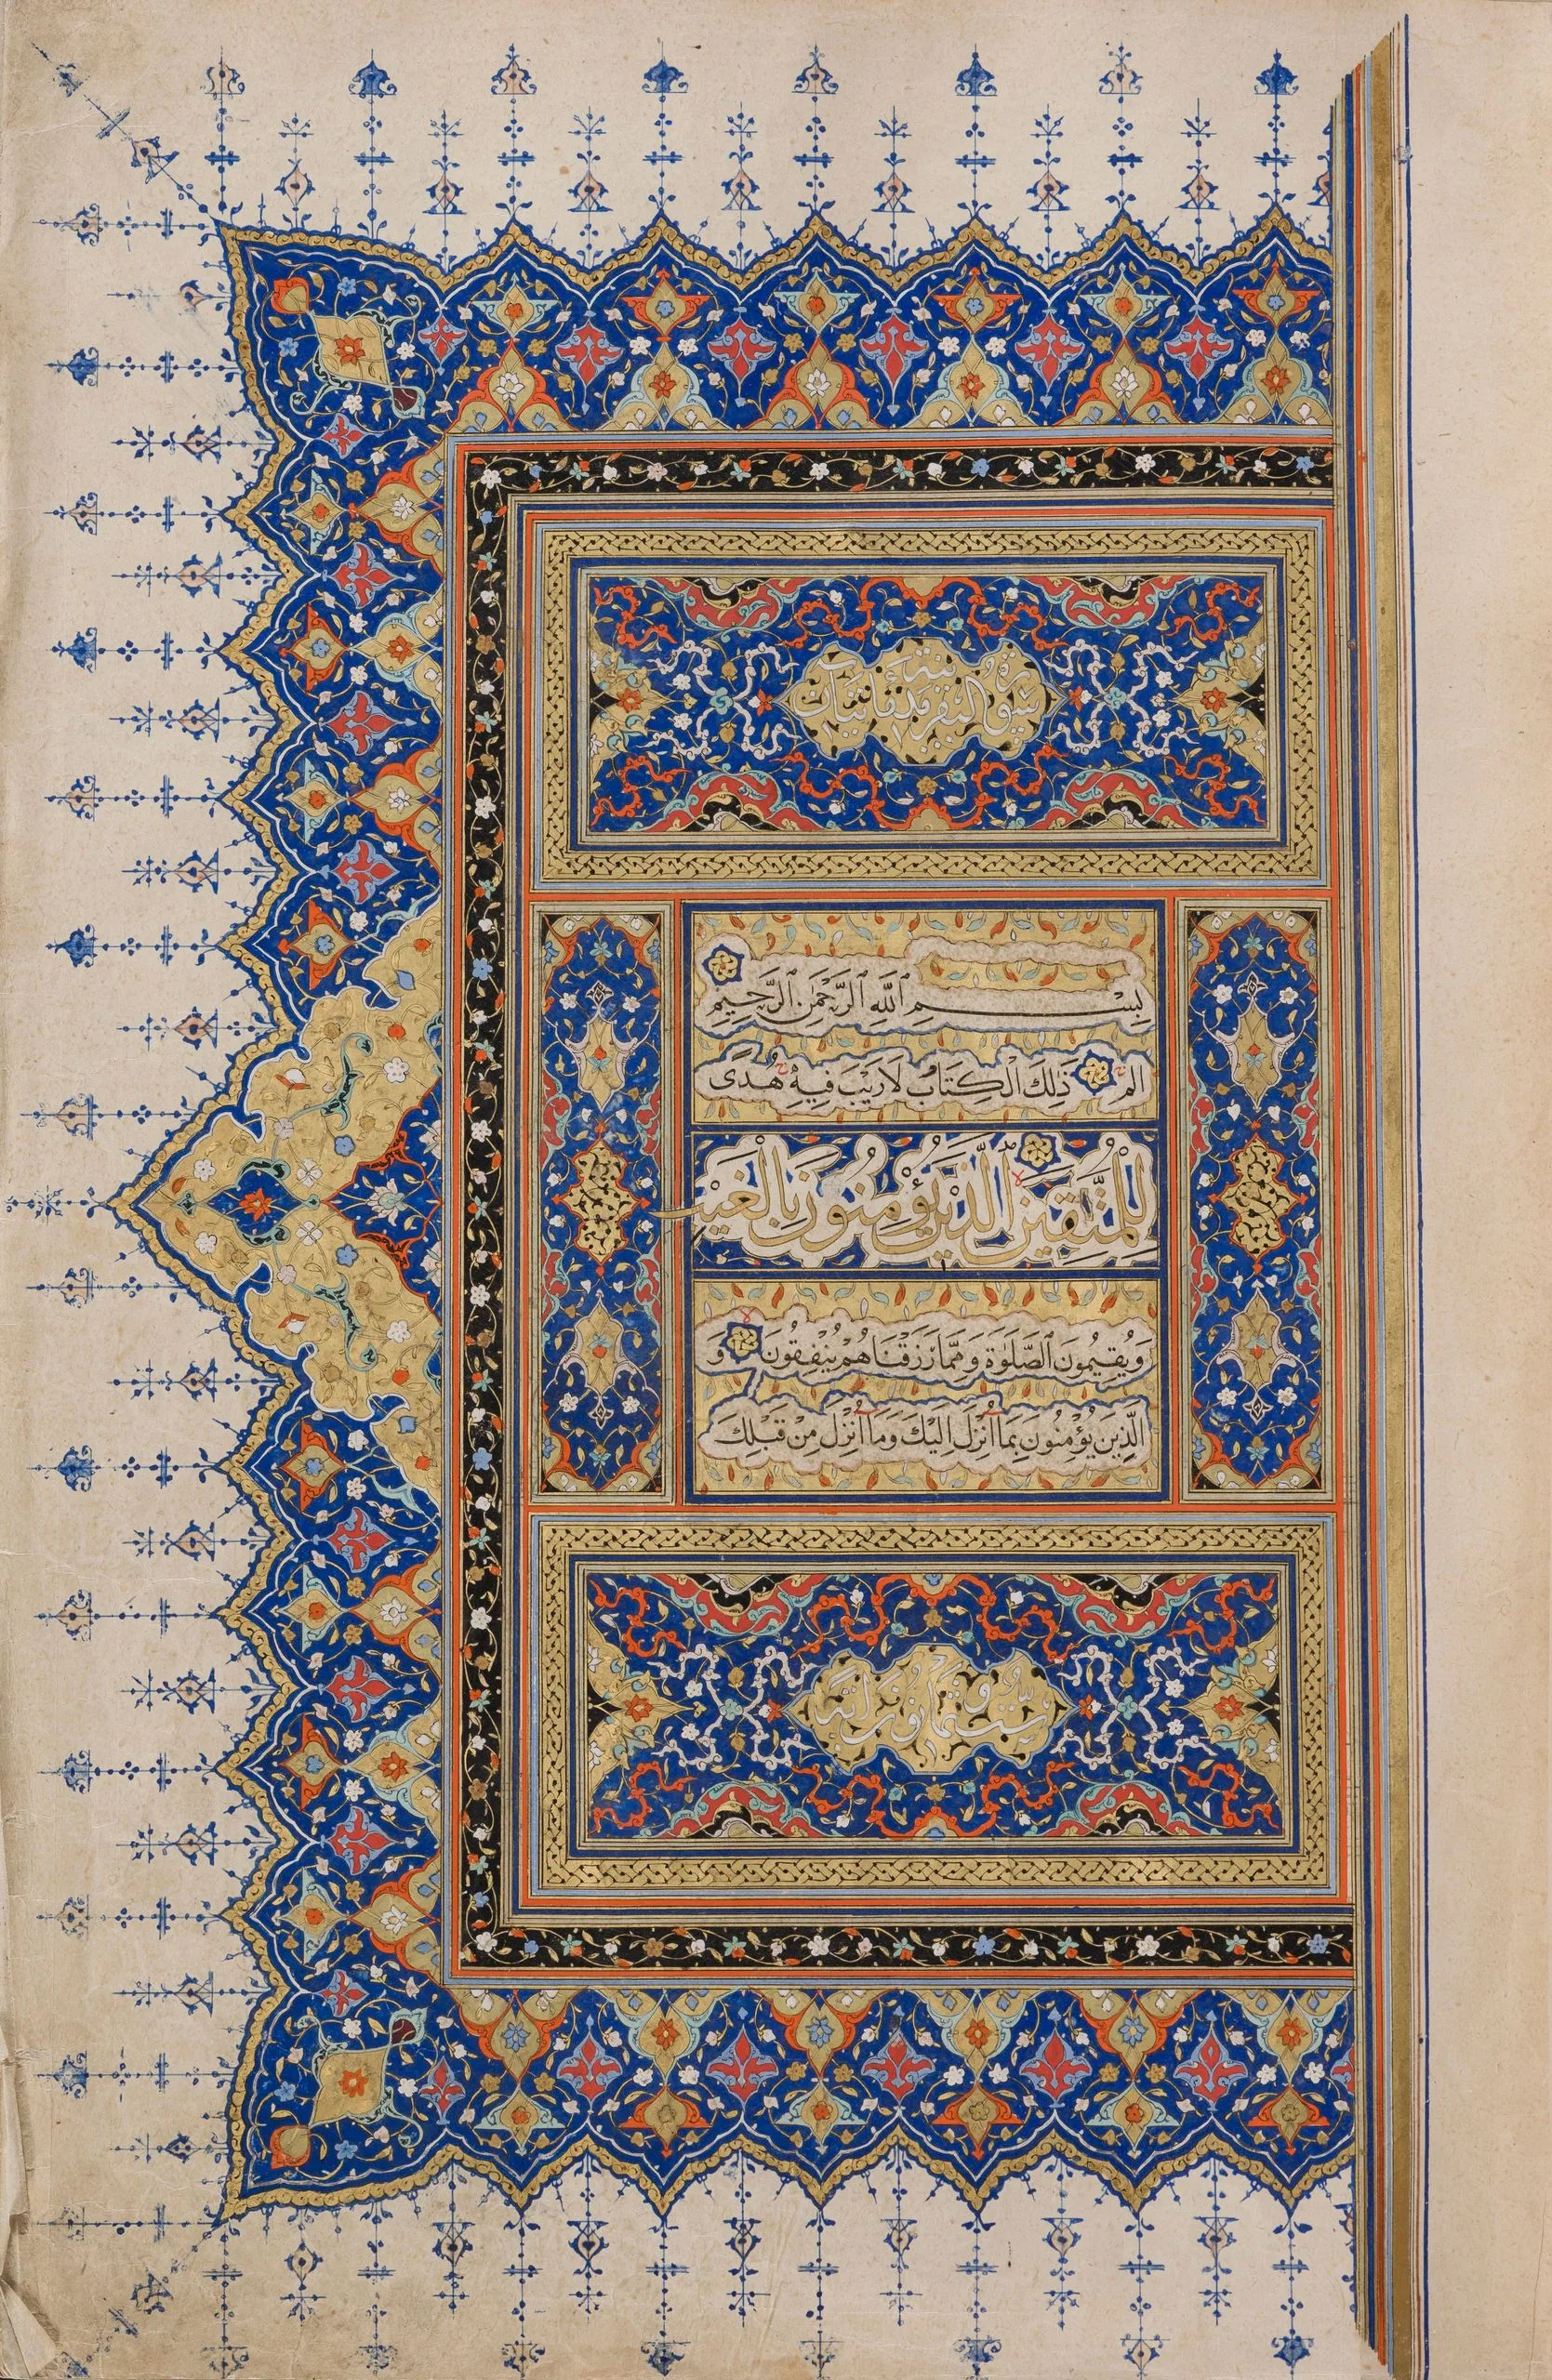 سورة البقرة مائتان
بِسْمِ ٱللَّهِ ٱلرَّحْمَٰنِ ٱلرَّحِيمِ
الم ذَٰلِكَ الْكِتَابُ لَا رَيْبَ فِيهِ هُدًى
لِلْمُتَّقِينَ الَّذِينَ يُؤْمِنُونَ بِالْغَيْبِ
وَيُقِيمُونَ الصَّلَوٰةَ وَمِمَّا رَزَقْنَاهُمْ يُنْفِقُونَ وَ
الَّذِينَ يُؤْمِنُونَ بِمَا أُنْزِلَ إِلَيْكَ وَمَا أُنْزِلَ مِنْ قَبْلِكَ
ست وثمانون آية